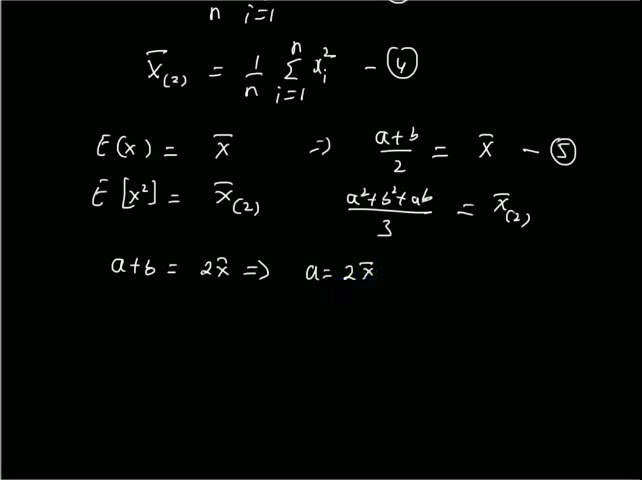 n i=1
x̄₍₂₎ = 1/n Σⁿᵢ₌₁ xᵢ² - ④
E(x) = x̄ ⇒ (a+b)/2 = x̄ - ⑤
E[x²] = x̄₍₂₎ (a²+b²+ab)/3 = x̄₍₂₎
a+b = 2x̄ ⇒ a = 2x̄